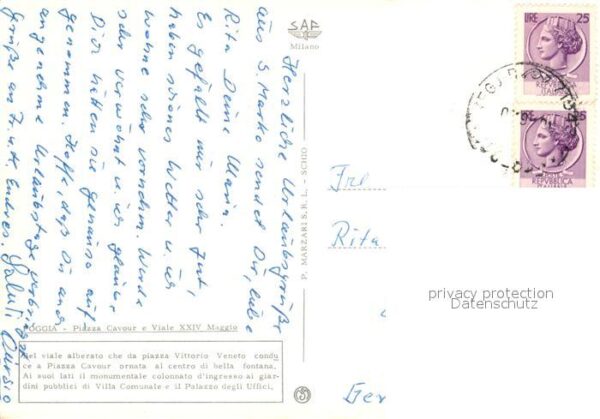 Herzliche Urlaubsgrüße
aus S. Marko sendet Dir, liebe
Rita Deine Maria.
Es gefällt mir sehr gut,
haben schönes Wetter u. ich
wohne sehr vornehm. Werde
sehr verwöhnt u. ich glaube
Dich hätten sie genauso auf-
genommen. Hoffe, daß Du auch
angenehme Urlaubstage verbringst
Grüße an F. u. H. Endres. Saluti
SAF
Milano
P. MARZARI S.R.L. - SCHIO
FOGGIA - Piazza Cavour e Viale XXIV Maggio
Nel viale alberato che da piazza Vittorio Veneto condu
ce a Piazza Cavour ornata al centro di bella fontana.
Ai suoi lati il monumentale colonnato d'ingresso ai giar-
dini pubblici di Villa Comunale e il Palazzo degli Uffici.
LIRE 25
25
REPUBBLICA
ITALIANA
Rita
privacy protection
Datenschutz
Ger